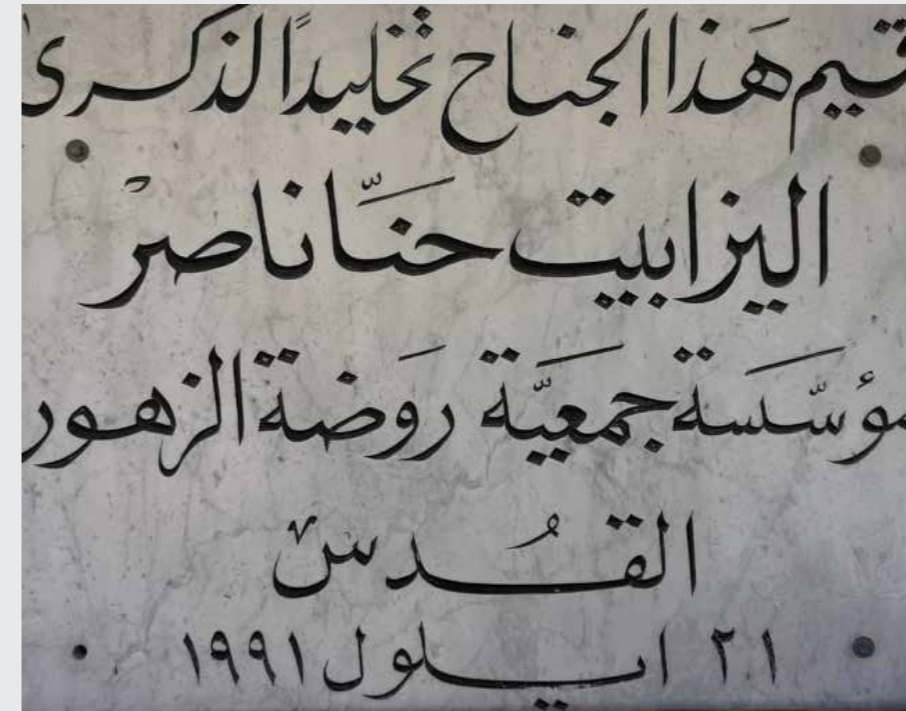 قيم هَذا الجناح تخليداً لذكرى
اليزابيت حنّا ناصر
مؤسّسة جمعيّة روَضة الزهور
القُدس
٢١ ايلول ١٩٩١